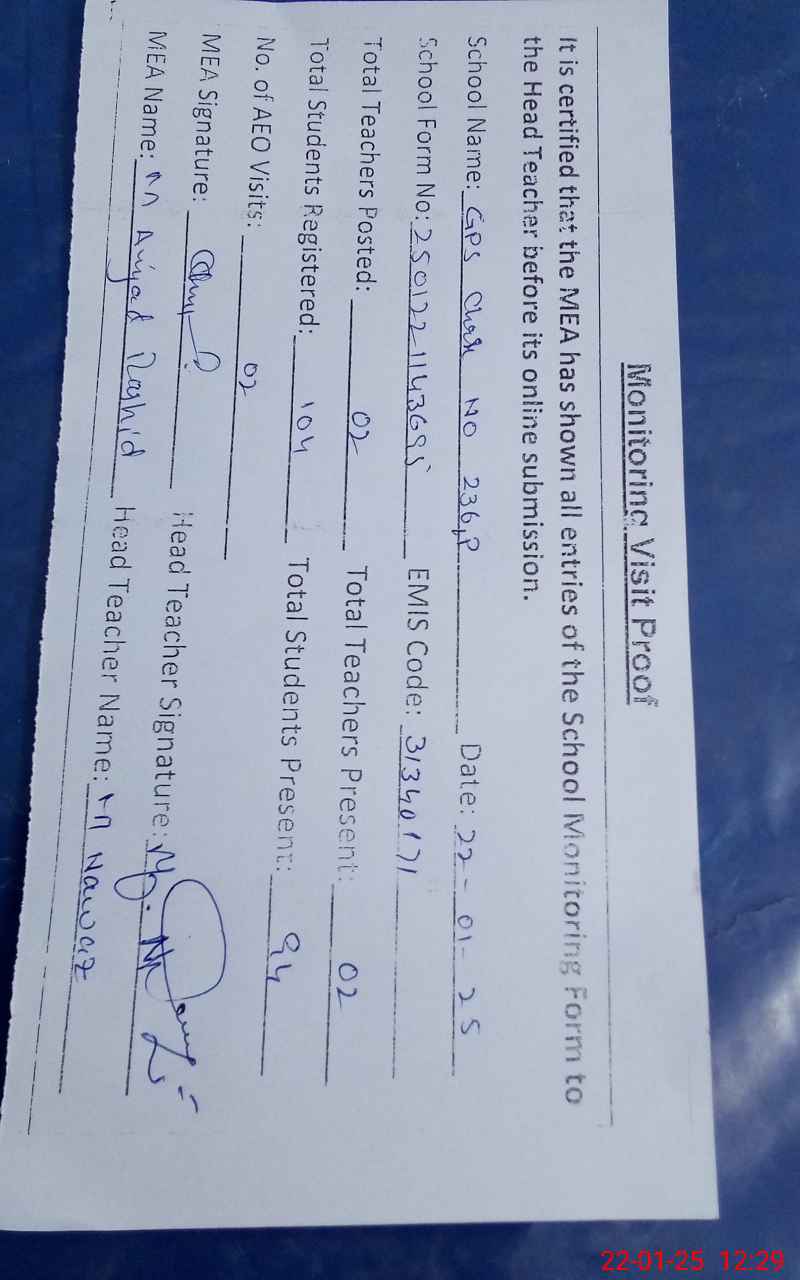 Monitoring Visit Proof
It is certified that the MEA has shown all entries of the School Monitoring Form to
the Head Teacher before its online submission.
School Name: GPS Chak NO 236,P Date: 22-01-25
School Form No: 2501221143695 EMIS Code: 31340171
Total Teachers Posted: 02 Total Teachers Present: 02
Total Students Registered: 104 Total Students Present: 94
No. of AEO Visits: 02
MEA Signature: Head Teacher Signature:
MEA Name: M Amjad Rashid Head Teacher Name: M Nawaz
22-01-25 12:29